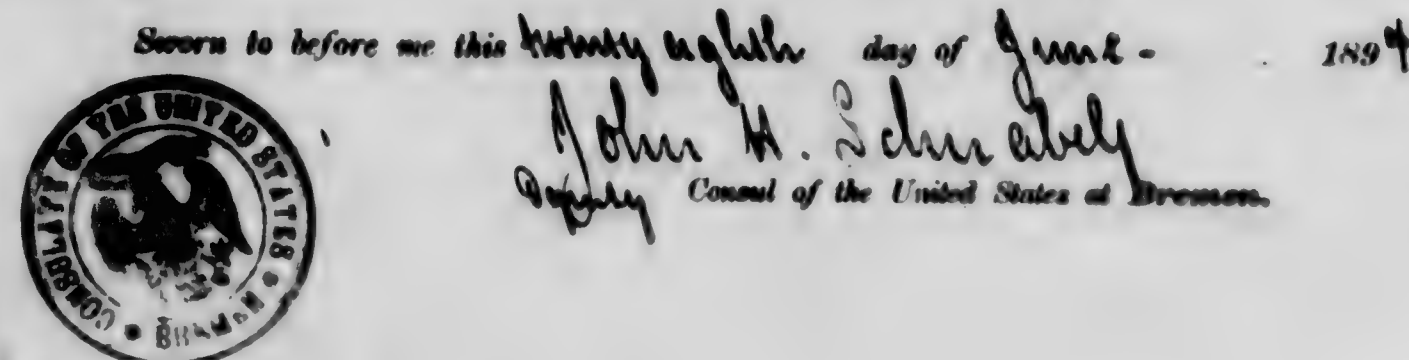 Sworn to before me this twenty eighth day of June - 1894
John H. Schnabely
Deputy Consul of the United States at Bremen.
CONSULATE OF THE UNITED STATES * BREMEN *